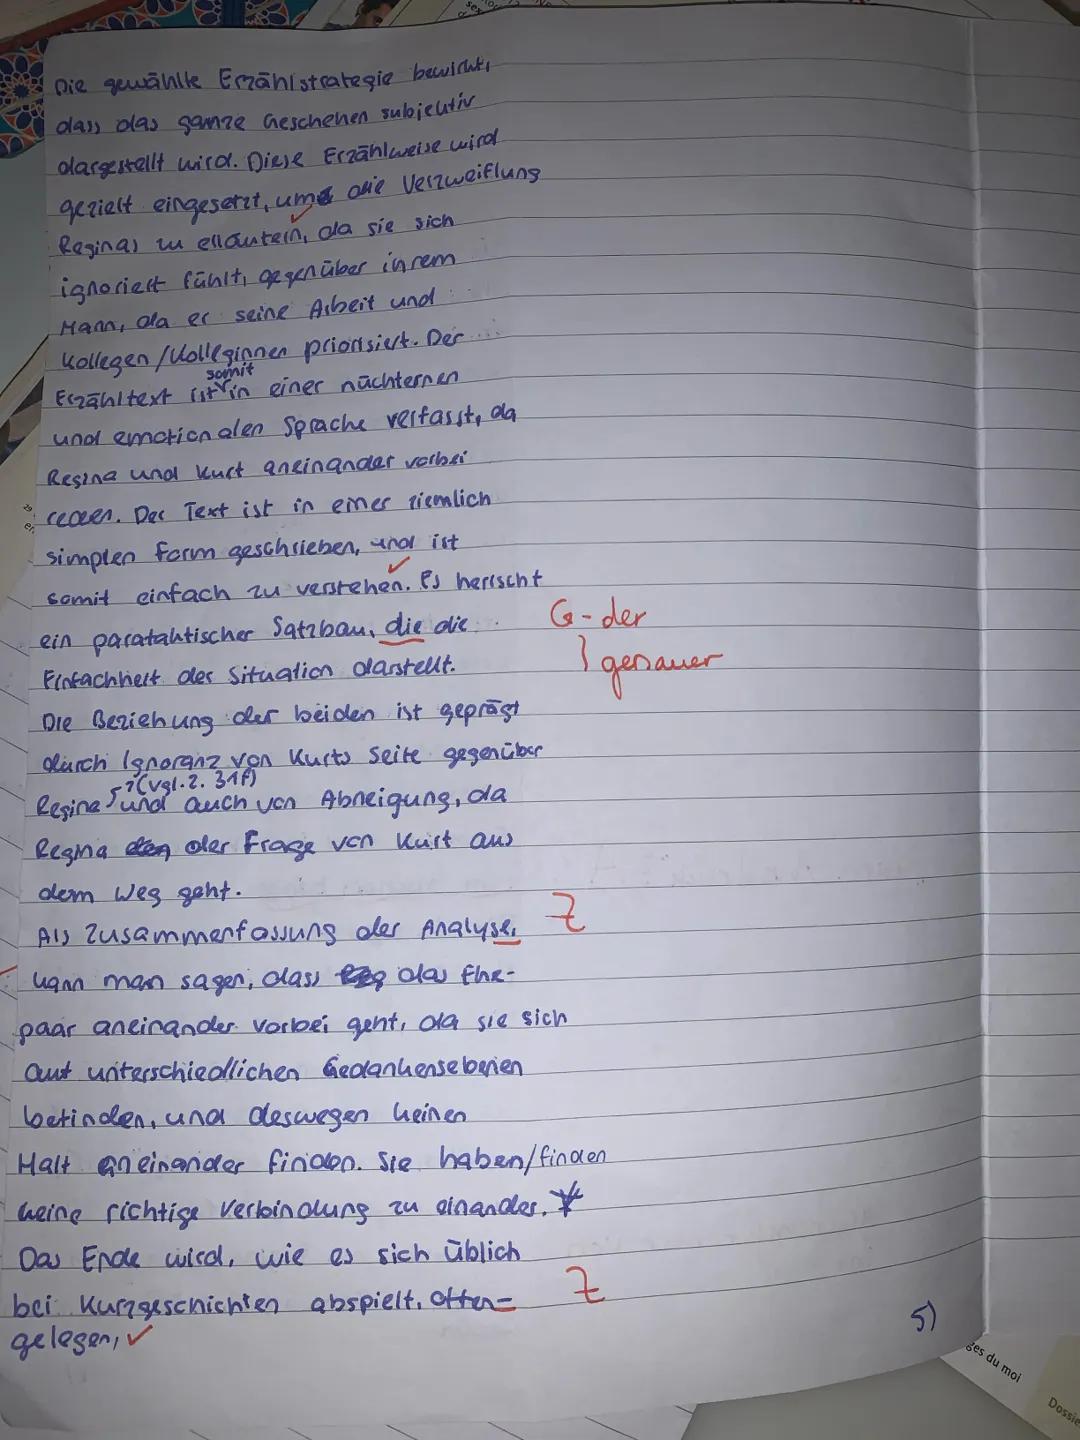 Die gewählte Erzählstrategie bewirkt,
dass das ganze Geschehen subjektiv
dargestellt wird. Diese Erzählweise wird
gezielt eingesetzt, um die Verzweiflung
Reginas zu erläutern, da sie sich
ignoriert fühlt, gegenüber ihrem
Mann, da er seine Arbeit und
Kollegen/Kolleginnen priorisiert. Der
somit
Erzähltext ist in einer nüchternen
und emotionalen Sprache verfasst, da
Regina und Kurt aneinander vorbei
reden. Der Text ist in einer ziemlich
simplen Form geschrieben, und ist
somit einfach zu verstehen. Es herrscht
ein parataktischer Satzbau, die die
G - der
Einfachheit der Situation darstellt.
genauer
Die Beziehung der beiden ist geprägt
durch Ignoranz von Kurts Seite gegenüber
(vgl. Z. 31f)
Regina und auch von Abneigung, da
Regina der Frage von Kurt aus
dem Weg geht.
Als Zusammenfassung der Analyse, Z
kann man sagen, dass das Ehe-
paar aneinander vorbei geht, da sie sich
auf unterschiedlichen Gedankensebenen
befinden, und deswegen keinen
Halt aneinander finden. Sie haben/finden
keine richtige Verbindung zu einander. *
Das Ende wird, wie es sich üblich
bei Kurzgeschichten abspielt, offen- Z
gelegen,
5)
ges du moi
Dossie